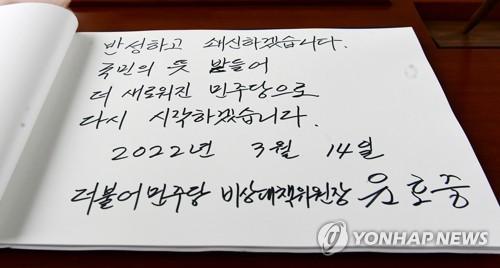 반성하고 쇄신하겠습니다.
국민의 뜻 받들어
더 새로워진 민주당으로
다시 시작하겠습니다.
2022년 3월 14일
더불어민주당 비상대책위원장 윤호중
YONHAP NEWS